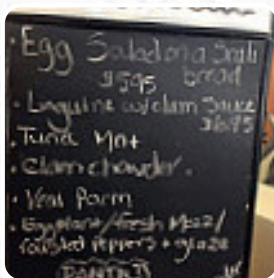 • Egg Salad on a Scali
$595 bread
• Linguine w/clam Sauce
$1695
• Tuna Melt
• Clam chowder.
• Veal Parm
• Eggplant/fresh Mozz/
roasted peppers + glaze